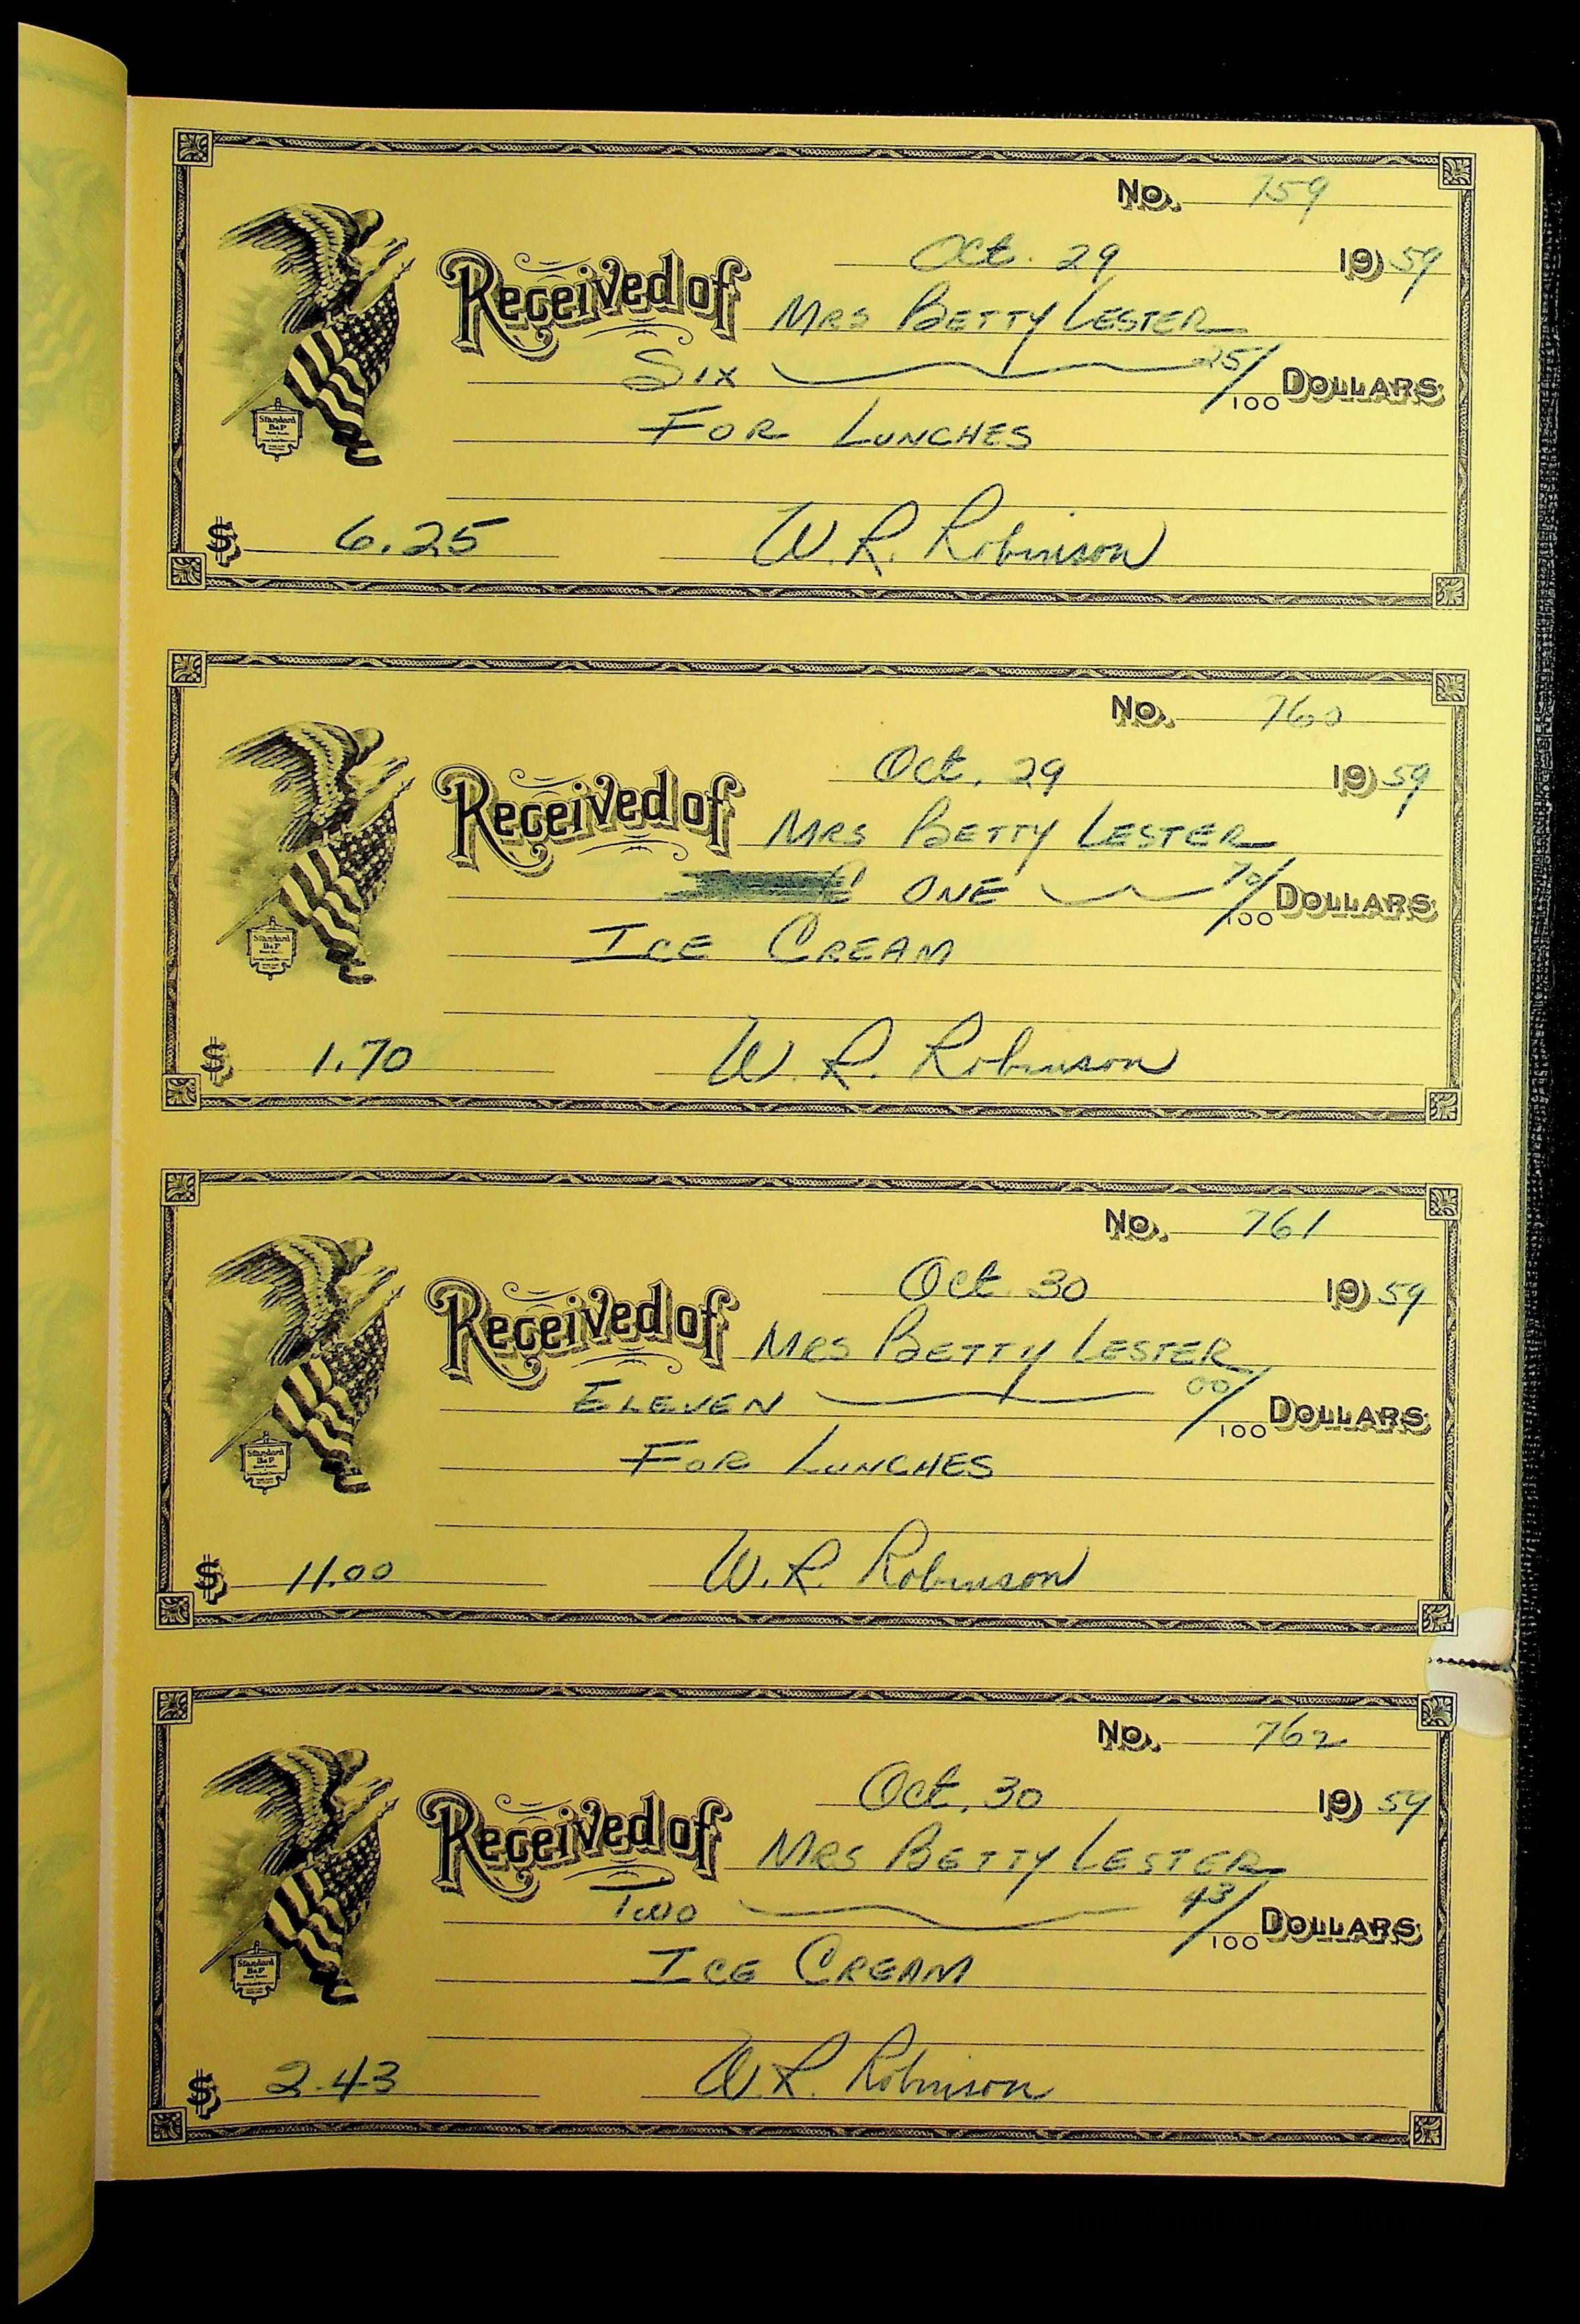 No. 759
Oct. 29 1959
Received of Mrs Betty Lester
Six 25/100 Dollars
For Lunches
Standard
B&P
$ 6.25 W. R. Robinson
No. 760
Oct. 29 1959
Received of Mrs Betty Lester
One 70/100 Dollars
Ice Cream
Standard
B&P
$ 1.70 W. R. Robinson
No. 761
Oct 30 1959
Received of Mrs Betty Lester
Eleven 00/100 Dollars
For Lunches
Standard
B&P
$ 11.00 W. R. Robinson
No. 762
Oct. 30 1959
Received of Mrs Betty Lester
Two 43/100 Dollars
Ice Cream
Standard
B&P
$ 2.43 W. R. Robinson